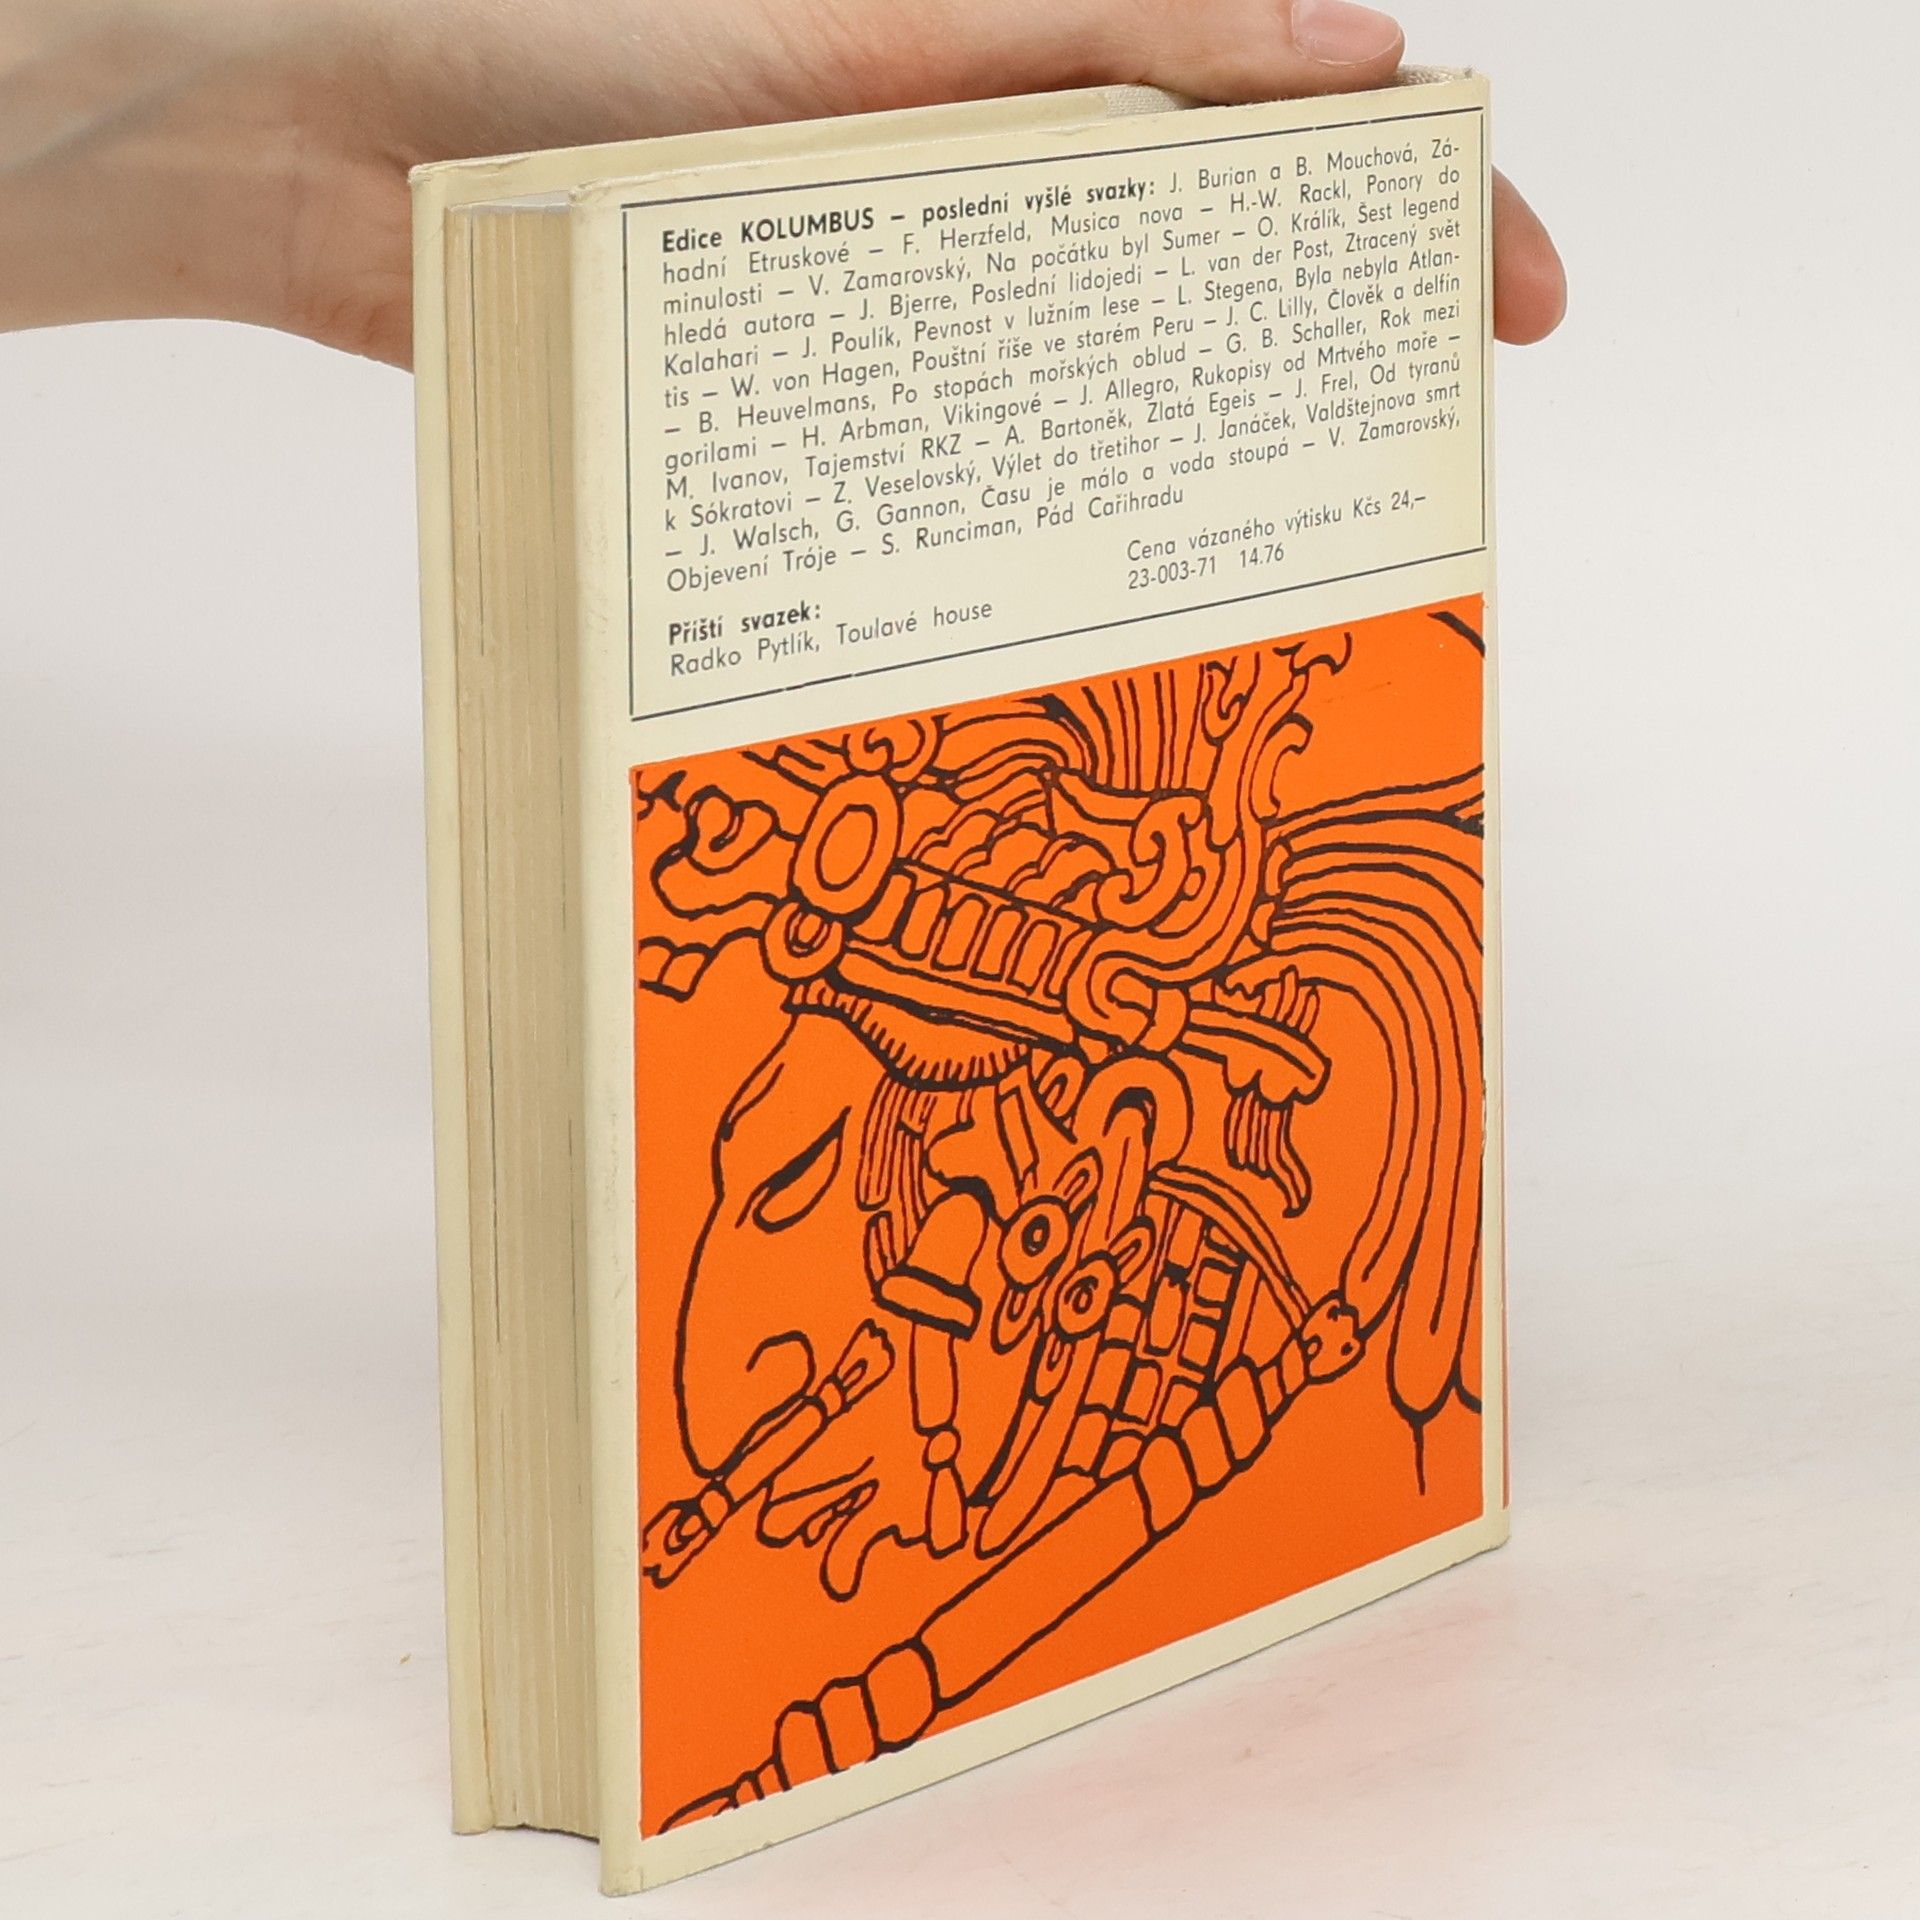 Edice KOLUMBUS – poslední vyšlé svazky: J. Burian a B. Mouchová, Zá-
hadní Etruskové – F. Herzfeld, Musica nova – H.-W. Rackl, Ponory do
minulosti – V. Zamarovský, Na počátku byl Sumer – O. Králík, Šest legend
hledá autora – J. Bjerre, Poslední lidojedi – L. van der Post, Ztracený svět
Kalahari – J. Poulík, Pevnost v lužním lese – L. Stegena, Byla nebyla Atlan-
tis – W. von Hagen, Pouštní říše ve starém Peru – J. C. Lilly, Člověk a delfín
– B. Heuvelmans, Po stopách mořských oblud – G. B. Schaller, Rok mezi
gorilami – H. Arbman, Vikingové – J. Allegro, Rukopisy od Mrtvého moře –
M. Ivanov, Tajemství RKZ – A. Bartoněk, Zlatá Egeis – J. Frel, Od tyranů
k Sókratovi – Z. Veselovský, Výlet do třetihor – J. Janáček, Valdštejnova smrt
– J. Walsch, G. Gannon, Času je málo a voda stoupá – V. Zamarovský,
Objevení Tróje – S. Runciman, Pád Cařihradu
Cena vázaného výtisku Kčs 24,–
23-003-71 14.76
Příští svazek:
Radko Pytlík, Toulavé house